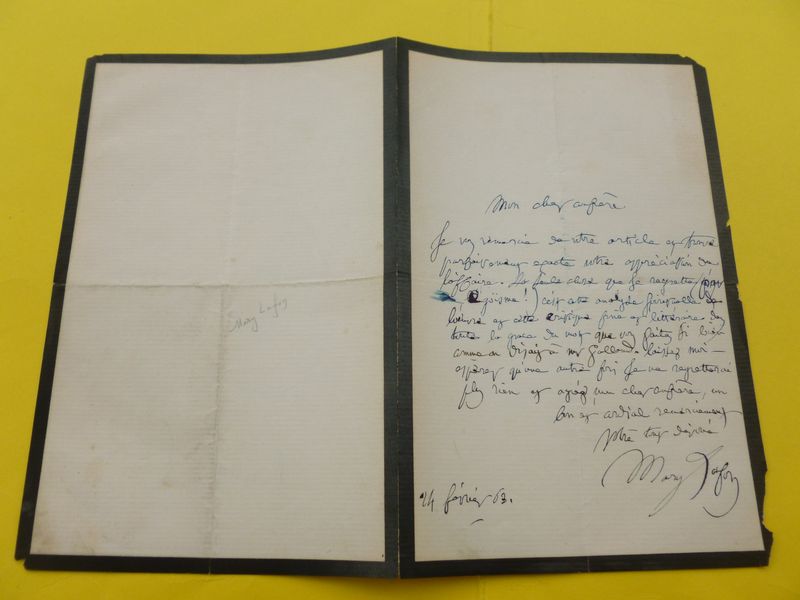 Mary Lafon
Mon cher confrère
Je vous remercie de votre article et trouve
parfaitement exacte votre appréciation de
l'affaire. La seule chose que je regrette (pour
égoïsme!) c'est cette analyse
l'œuvre et cette critique fine et littéraire dans
toute la grâce du mot que vous faites si bien
comme on disait à Mr Galland. laissez moi
espérer qu'une autre fois je ne regretterai
plus rien et agréez, mon cher confrère, un
bon et cordial remerciement
Votre tout dévoué
Mary Lafon
24 février 63.